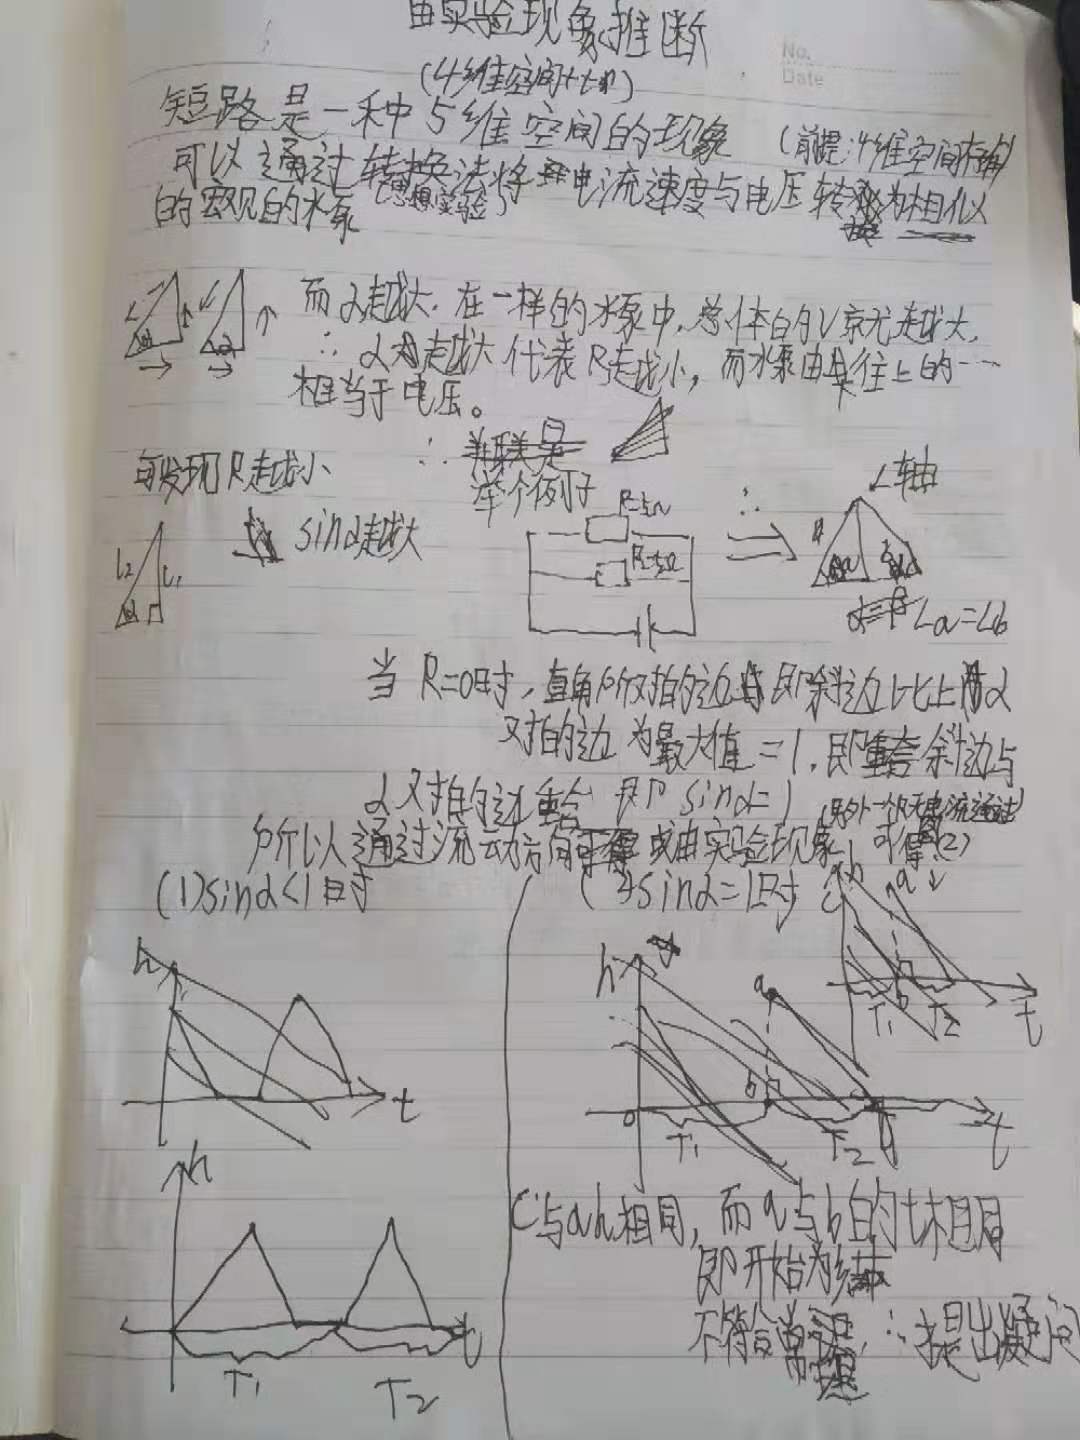 由实验现象推断
No.
Date
(4维空间+t轴)
短路是一种5维空间的现象 (前提:4维空间存在)
可以通过转换法将电流速度与电压转换为相似
(思想实验)
的宏观的水泵
而α越大,在一样的水泵中,总体的V就越大,
∴α越大代表R越小,而水泵由具往上的…
相当于电压。
可发现R越小 ∴并联是
举个例子
sinα越大
R=5Ω
R=5Ω
∴
轴
L2 L1
α
∠a=∠b
当R=0时,直角所对的边即斜边比上α
对的边为最大值=1,即重合斜边与
α对的边重合 即sinα=1 (另外一个无电流通过)
所以通过流动方向可得或由实验现象可得(2)
(1)sinα<1时
sinα=1时
h
t
h
T1 T2
t
h
a
b
0
T1 T2
t
h
a
b
T1 T2
t
c与a h相同,而a与b的t相同
即开始为结
不符合常理,∴才提出疑问